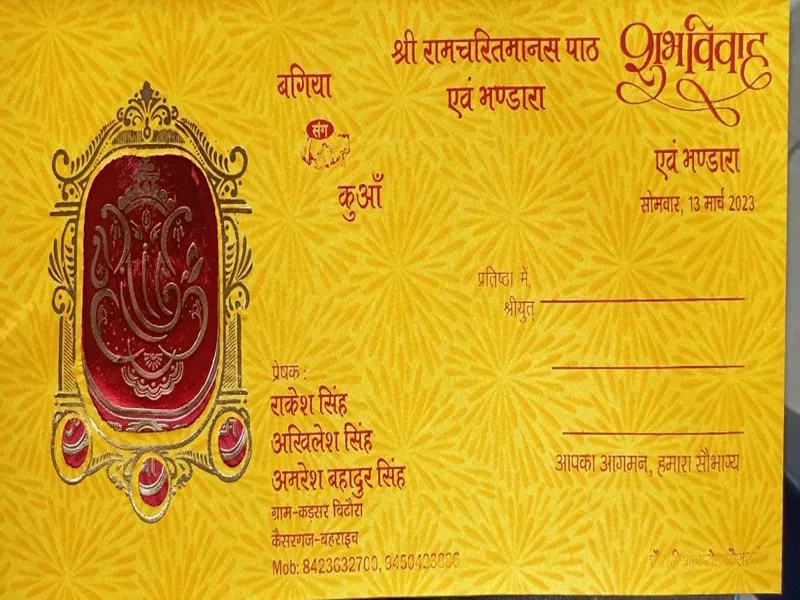 श्री रामचरितमानस पाठ
एवं भण्डारा
शुभविवाह
एवं भण्डारा
सोमवार, 13 मार्च 2023
बगिया
संग
कुआँ
प्रतिष्ठा में,
श्रीयुत्
आपका आगमन, हमारा सौभाग्य
प्रेषक :
राकेश सिंह
अखिलेश सिंह
अमरेश बहादुर सिंह
ग्राम-कड़सर बिटौरा
कैसरगज-बहराइच
Mob: 8423632700,